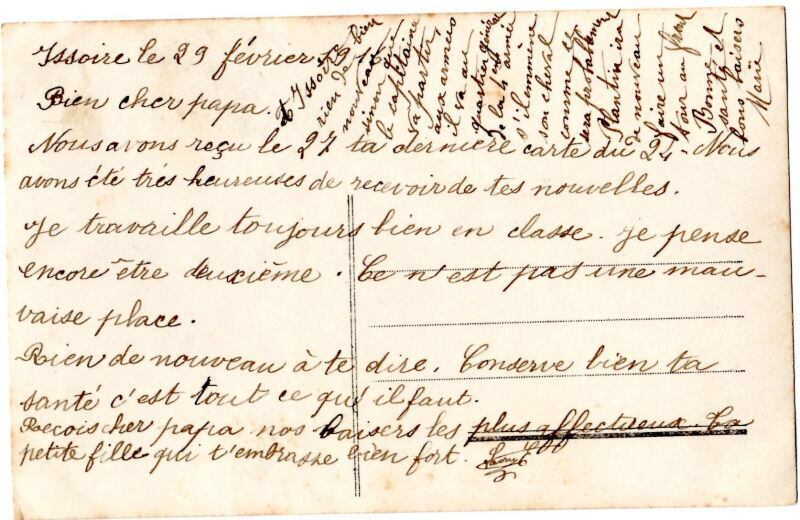 Issoire le 29 février 1916
Bien cher papa.
Nous avons reçu le 27 ta dernière carte du 24. Nous
avons été très heureuses de recevoir de tes nouvelles.
Je travaille toujours bien en classe. Je pense
encore être deuxième. Ce n'est pas une mau-
vaise place.
Rien de nouveau à te dire. Conserve bien ta
santé c'est tout ce qu'il faut.
Reçois cher papa nos baisers les plus affectueux. Ta
petite fille qui t'embrasse bien fort.
A Issoire bien
rien de
nouveau
sinon que
le capitaine
va partir
aux armées
il va au
quartier général
de la armée
s'il emmène
son cheval
comme
sera probablement
Plantin ira
de nouveau
faire un
tour au front
Bonne
santé et
bons baisers
Marie